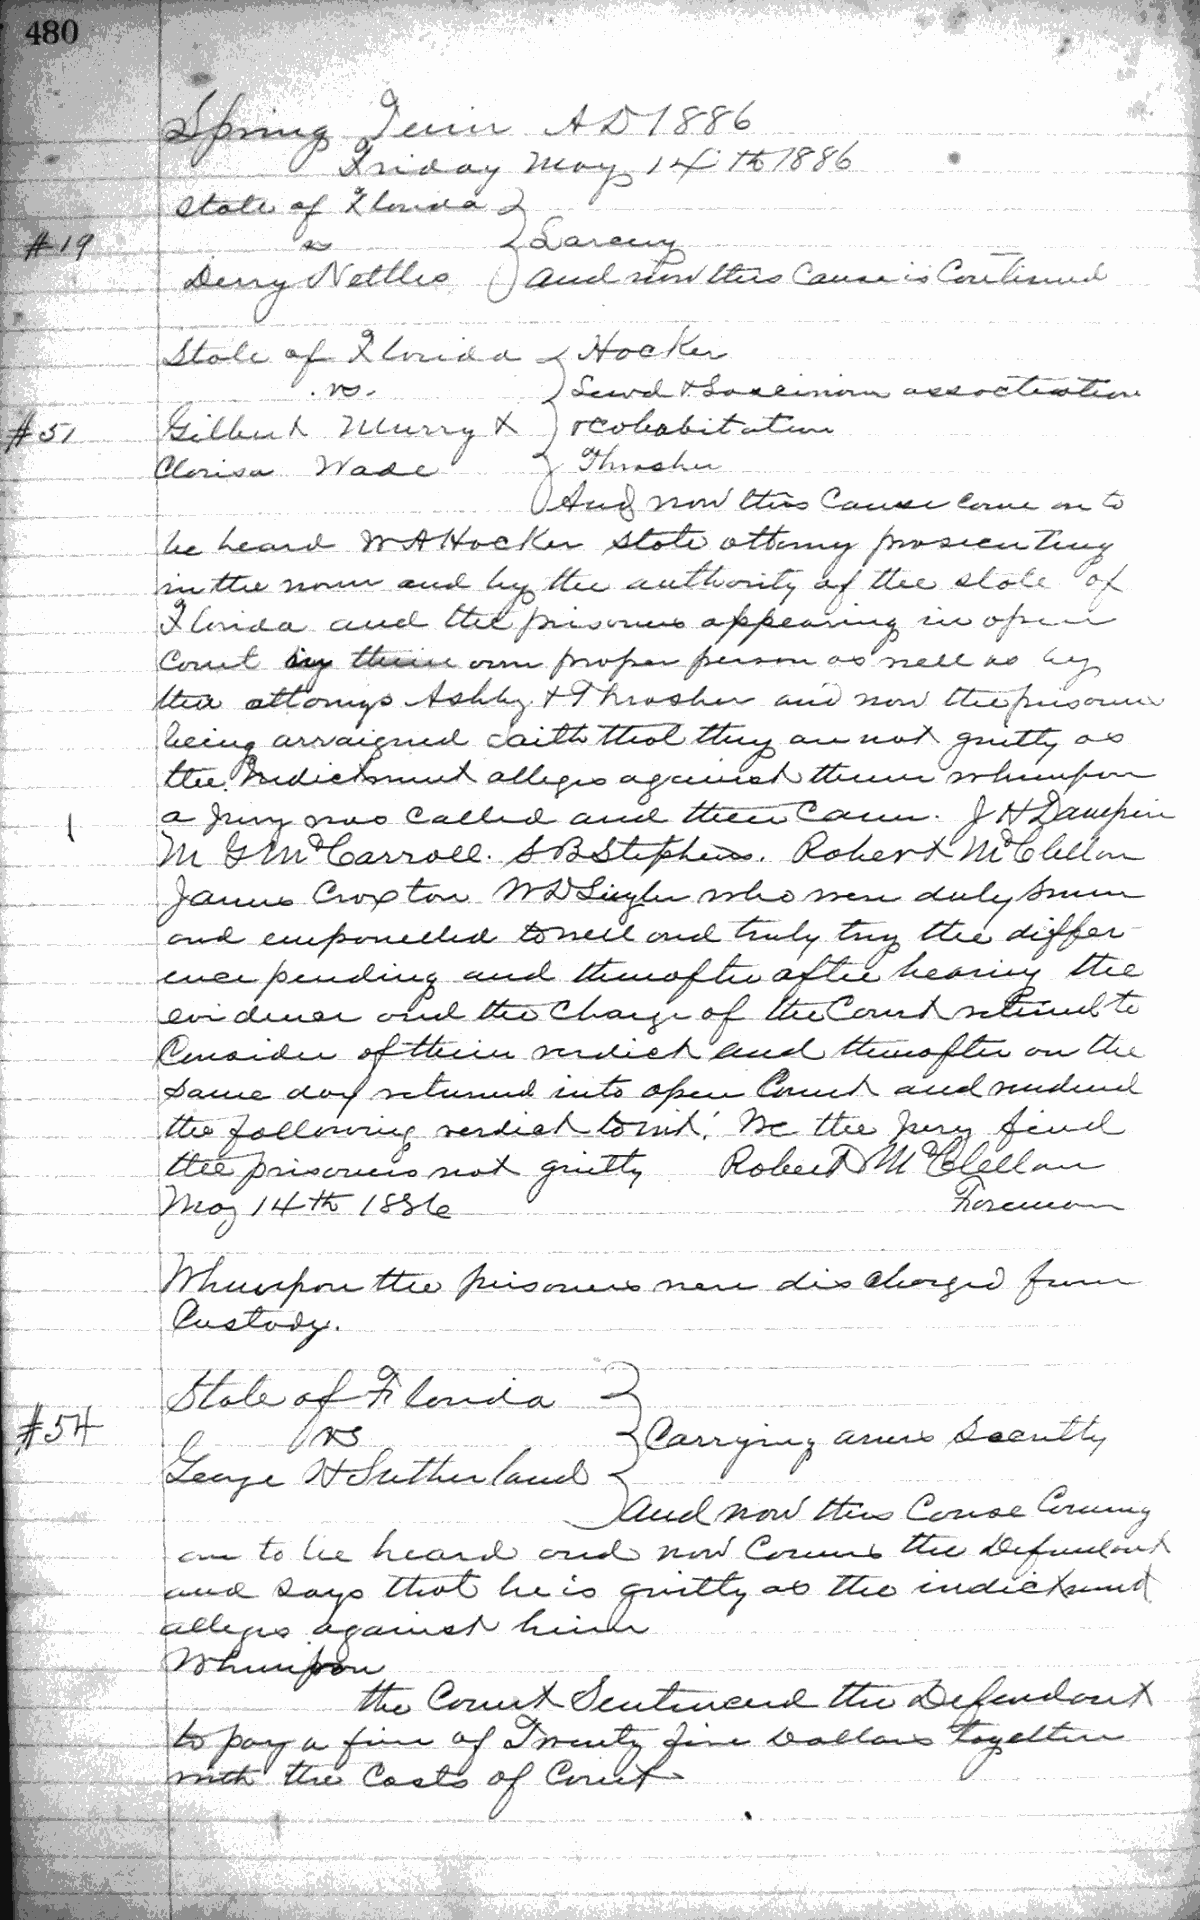 480
Spring Term AD 1886
Friday May 14th 1886
State of Florida
#19 vs Larceny
Derry Nettles and now this Cause is Continued
State of Florida Hocker
vs. Lewd & Lascivious association
#51 Gilbert Murry & & cohabitation
Clarisa Wade Thrasher
And now this Cause come on to
be heard W A Hocker State attorny prosecuting
in the name and by the authority of the state of
Florida and the prisoners appearing in open
Court by their own proper person as well as by
their attornys Ashby & Thrasher and now the prisoners
being arraigned saith that they are not guilty as
the Indictment alleges against them whereupon
1 a Jury was Called and there Came. J H
M G McCarroll. S B Stephens. Robert McClellan
James Croxton W D who were duly sworn
and empanelled to well and truly try the differ-
ence pending and thereafter after hearing the
evidence and the Charge of the Court retired to
Consider of their verdict and thereafter on the
same day returned into open Court and rendered
the following verdict towit: We the Jury find
the prisoners not guilty Robert McClellan
May 14th 1886 Foreman
Whereupon the prisoners were discharged from
Custody.
State of Florida
#54 vs Carrying arms Secretly
George H Sutherland
and now this Cause Coming
on to be heard and now Comes the Defendant
and says that he is guilty as the indictment
alleges against him
Whereupon
the Court Sentenced the Defendant
to pay a fine of Twenty five Dollars together
with the Costs of Court